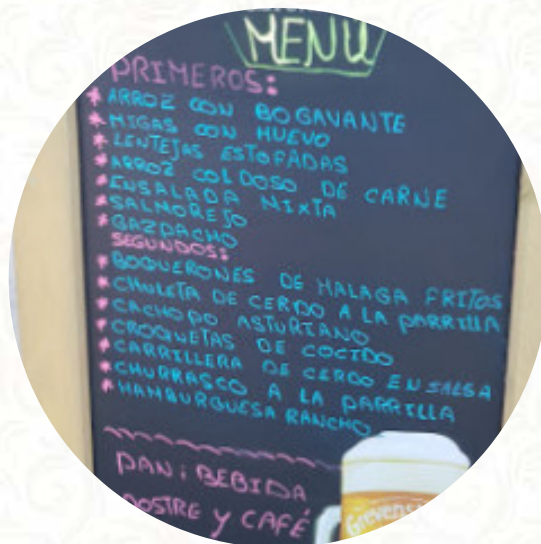 MENÚ
PRIMEROS:
* ARROZ CON BOGAVANTE
* MIGAS CON HUEVO
* LENTEJAS ESTOFADAS
* ARROZ COLDOSO DE CARNE
* ENSALADA MIXTA
* SALMOREJO
* GAZPACHO
SEGUNDOS:
* BOQUERONES DE MALAGA FRITOS
* CHULETA DE CERDO A LA PARRILLA
* CACHOPO ASTURIANO
* CROQUETAS DE COCIDO
* CARRILLERA DE CERDO EN SALSA
* CHURRASCO A LA PARRILLA
* HAMBURGUESA RANCHO
PAN; BEBIDA
POSTRE Y CAFÉ